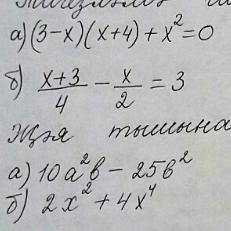 а) (3-x)(x+4)+x²=0
б) \frac{x+3}{4} - \frac{x}{2} = 3
Жәя тышына
а) 10a²b - 25b²
б) 2x² + 4x⁴